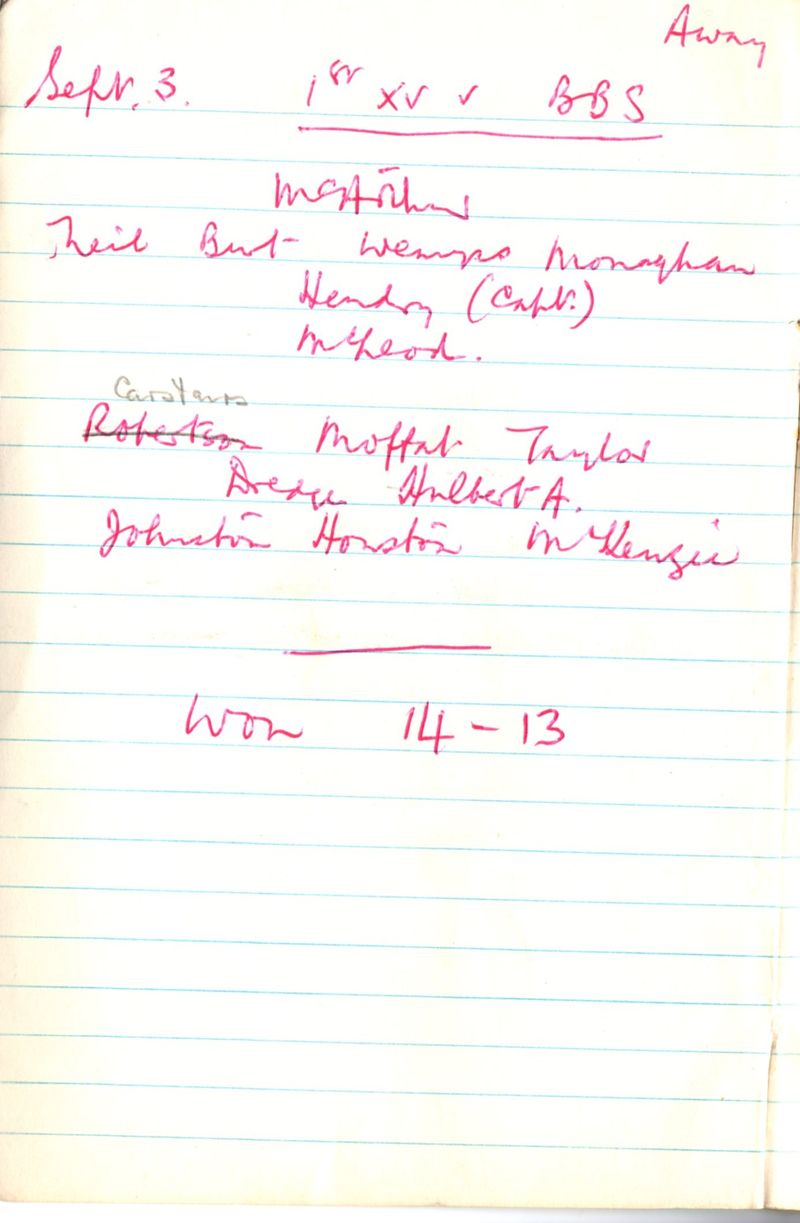 Away
Sept. 3. 1st XV v BBS
McArthur
Theil Burt Wemyss Monaghan
Hendry (Capt.)
McLeod.
Carstairs
Robertson Moffat Taylor
Dredge Hulbert A.
Johnston Houston McKenzie
Won 14 - 13